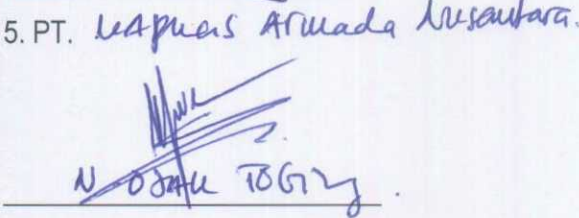 5. PT. Mapnas Armada Nusantara.
N OJAK TOGI